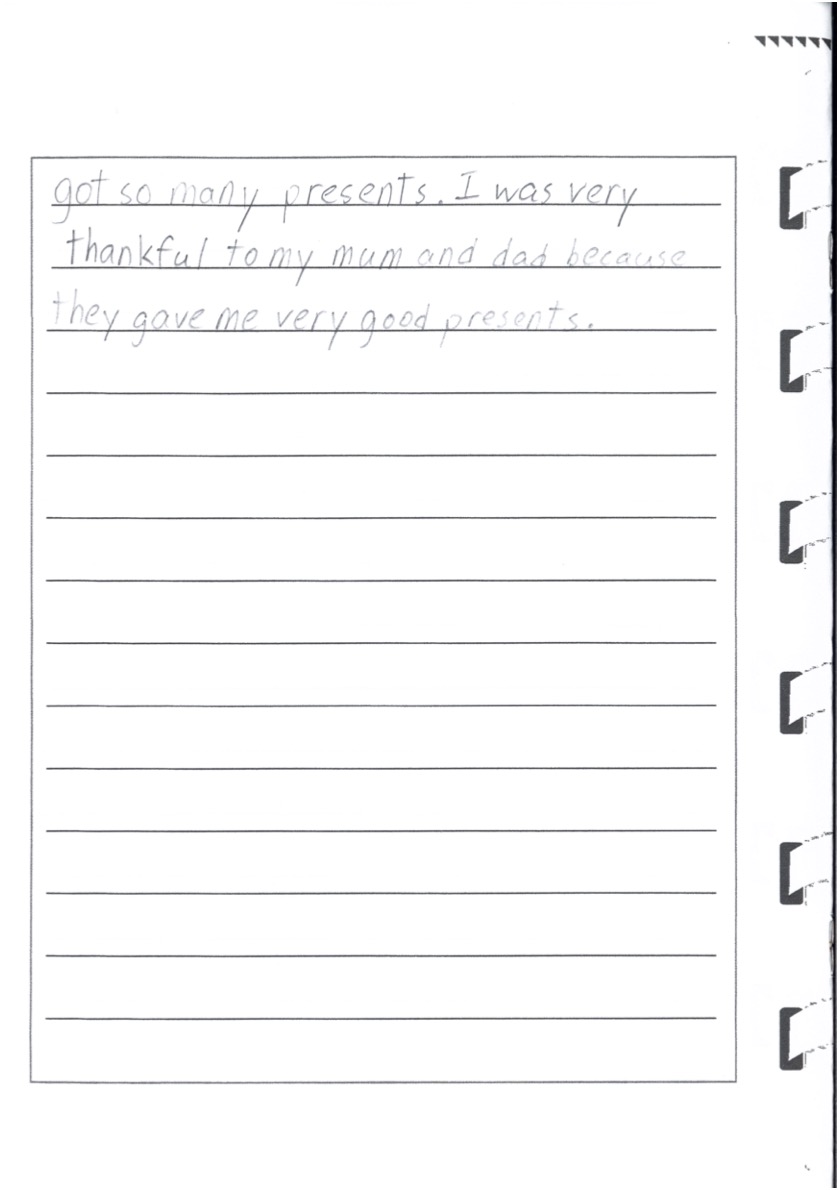 got so many presents. I was very
thankful to my mum and dad because
they gave me very good presents.